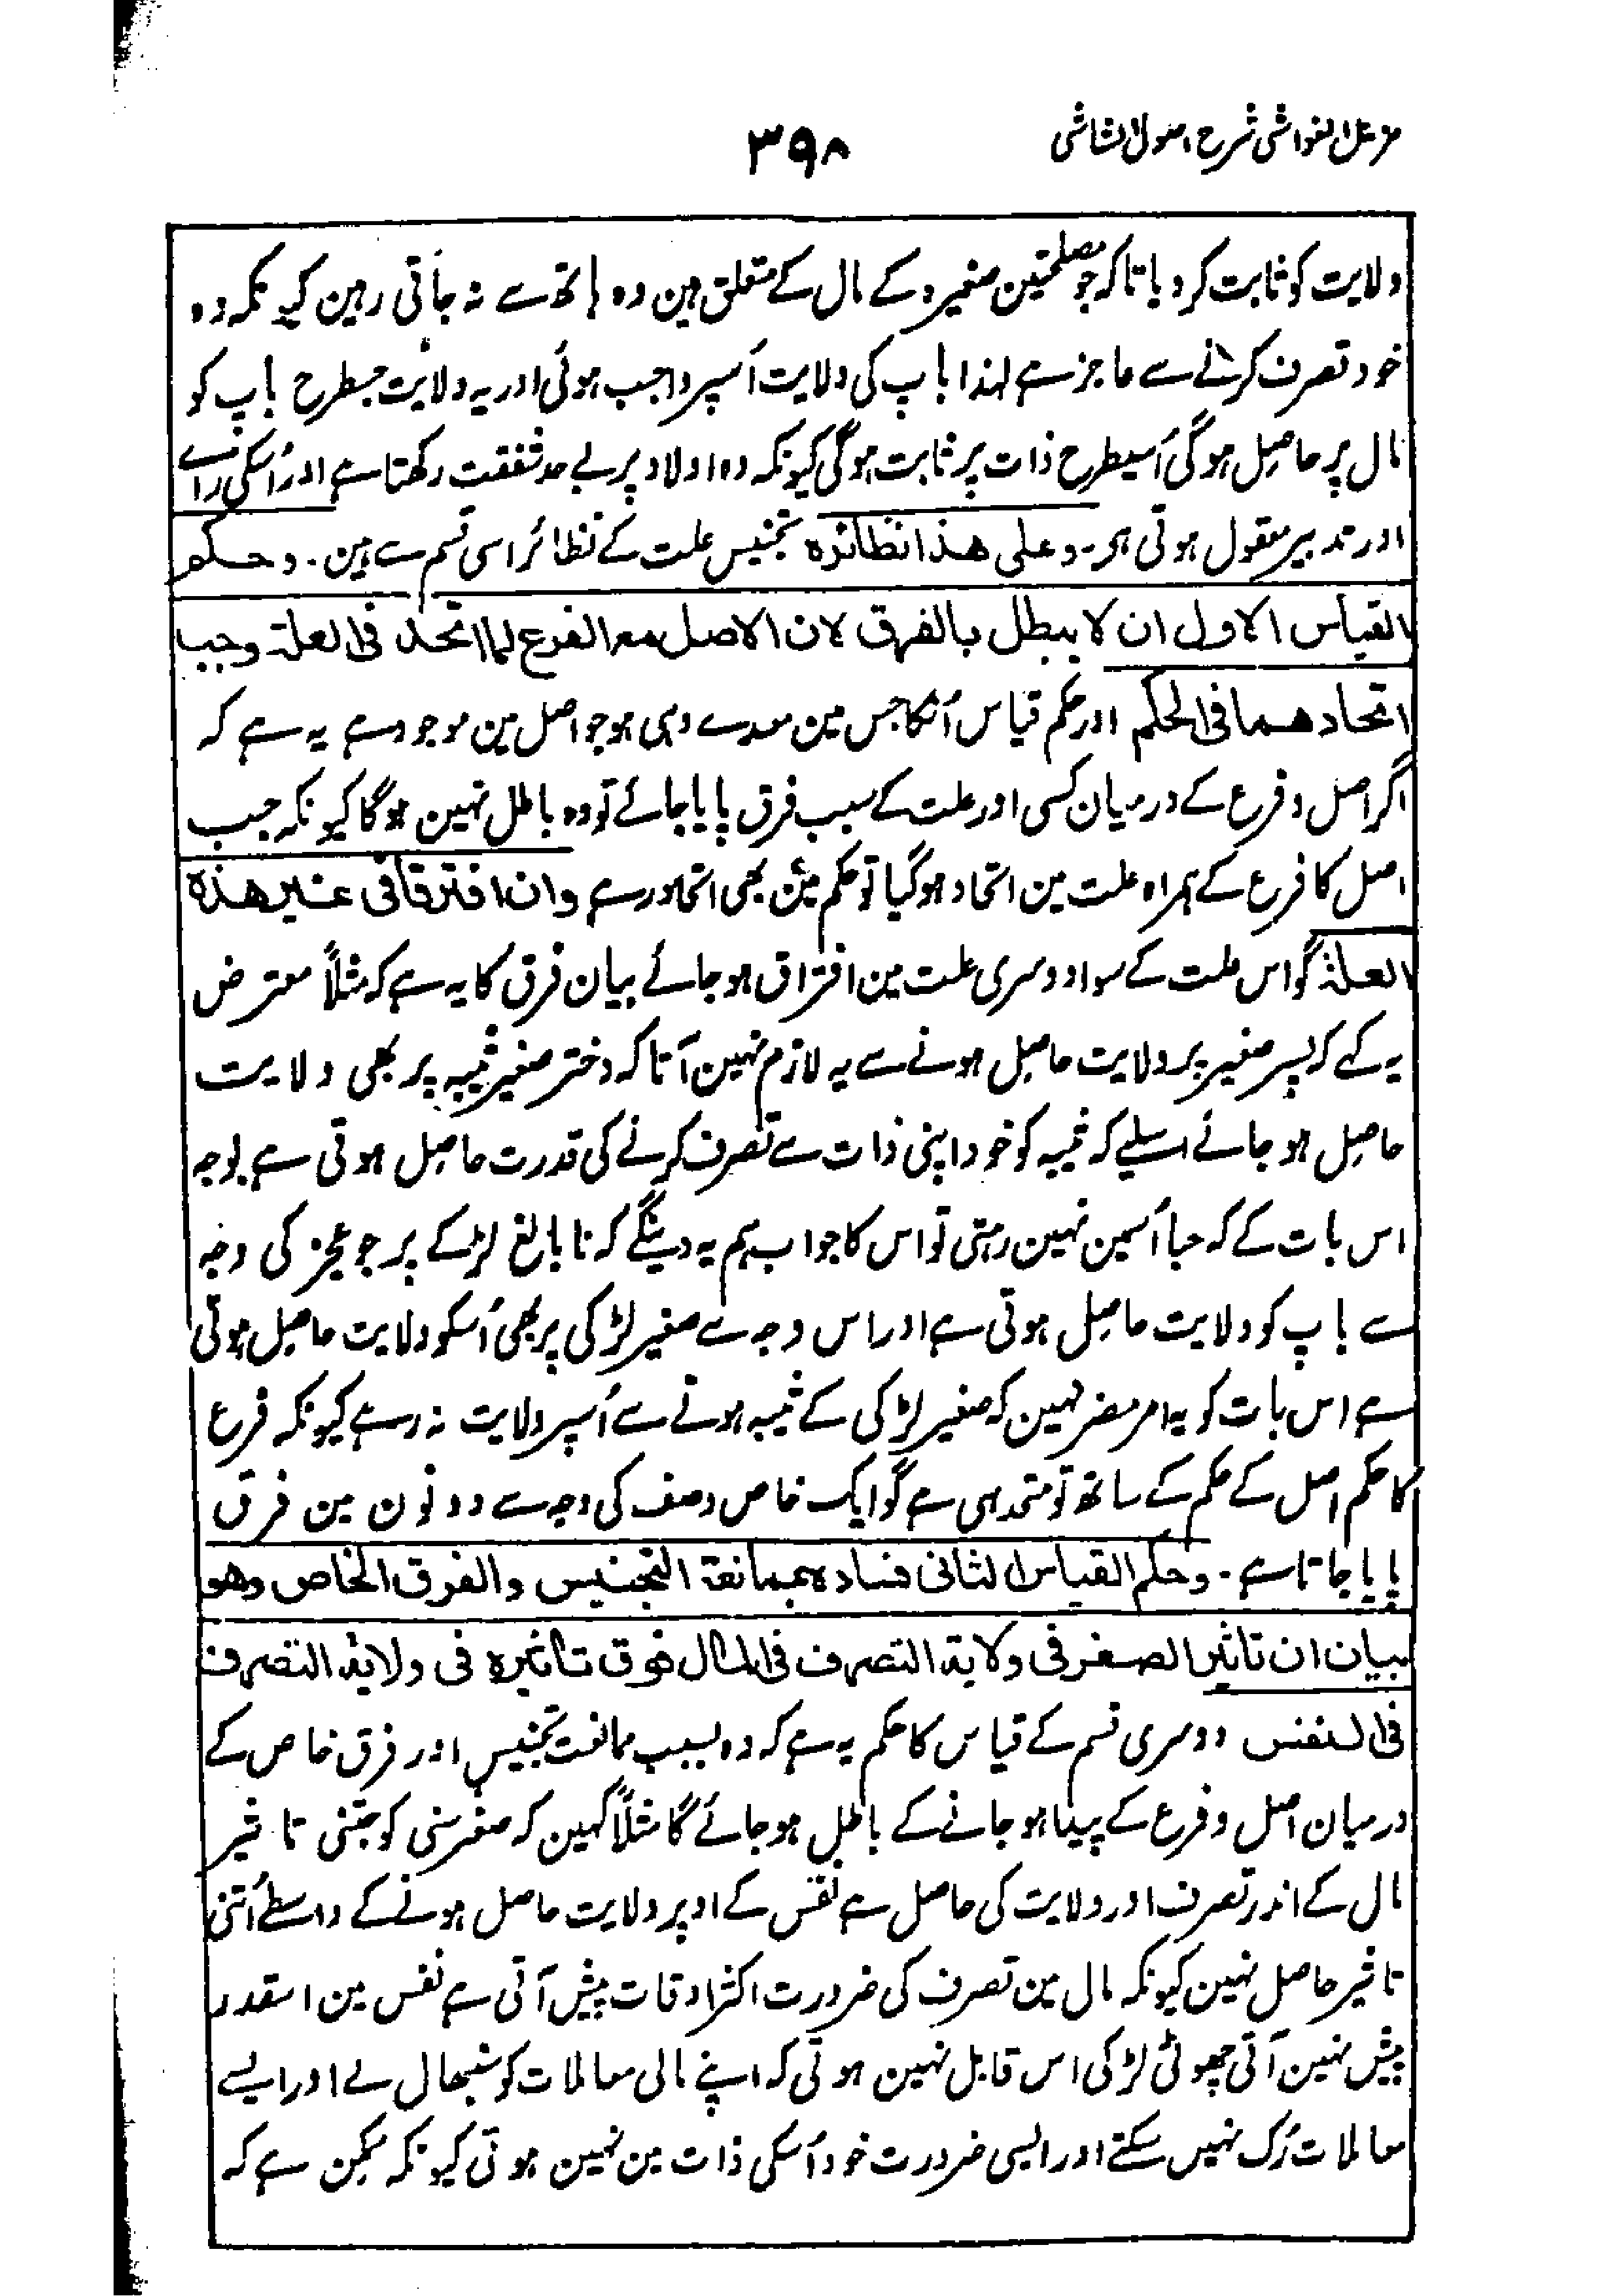 مزعل الغواشی شرح اصول الشاشی
۳۹۸
ولایت کو ثابت کردیا تاکہ جو مصلحتین صغیرہ کے مال کے متعلق ہین وہ ہاتھ سے نہ جاتی رہین کیونکہ وہ
خود تصرف کرنے سے عاجز ہے لہذا باپ کی ولایت اُسپر واجب ہوئی اور یہ ولایت جسطرح باپ کو
مال پر حاصل ہوگی اُسیطرح ذات پر ثابت ہوگی کیونکہ وہ اولاد پر بے حد شفقت رکھتا ہے اور اُسکی رائے
اور تدبیر معقول ہوتی ہی۔ وعلی ھذا نظائرہ تجنیس علت کے نظائر اسی قسم سے ہین۔ وحکم
القیاس الاول ان لا یبطل بالفرق لان الاصل مع الفرع لما اتحد فی العلة وجب
اتحادھما فی الحکم اور حکم قیاس اُسکا جس مین معدے وہی ہو جو اصل مین موجود ہے یہ ہے کہ
اگر اصل و فرع کے درمیان کسی اور علت کے سبب فرق پایا جائے تو وہ باطل نہین ہوگا کیونکہ جب
اصل کا فرع کے ہمراہ علت مین اتحاد ہوگیا تو حکم مین بھی اتحاد رہے وان افترقا فی غیر ھذہ
العلة گو اس علت کے سوا دوسری علت مین افتراق ہوجائے بیان فرق کا یہ ہے کہ مثلاً معترض
یہ کہے کہ پسر صغیر پر ولایت حاصل ہونے سے یہ لازم نہین آتا کہ دختر صغیر ثیبہ پر بھی ولایت
حاصل ہو جائے اسلیے کہ ثیبہ کو خود اپنی ذات سے تصرف کرنے کی قدرت حاصل ہوتی ہے بوجہ
اس بات کے کہ حیا اُسمین نہین رہتی تو اس کا جواب ہم یہ دینگے کہ نا بالغ لڑکے پر جو عجز کی وجہ
سے باپ کو ولایت حاصل ہوتی ہے اور اس وجہ سے صغیر لڑکی پر بھی اُسکو ولایت حاصل ہوتی
ہے اس بات کو یہ امر مضر نہین کہ صغیر لڑکی کے ثیبہ ہونے سے اُسپر ولایت نہ رہے کیونکہ فرع
کا حکم اصل کے حکم کے ساتھ تو متحد ہی ہے گو ایک خاص وصف کی وجہ سے دونون مین فرق
پایا جاتا ہے۔ وحکم القیاس الثانی فسادہ بممانعة التجنیس والفرق الخاص وھو
بیان ان تاثیر الصغر فی ولایة التصرف فی المال فوق تاثیرہ فی ولایة التصرف
فی النفس دوسری قسم کے قیاس کا حکم یہ ہے کہ وہ بسبب ممانعت تجنیس اور فرق خاص کے
درمیان اصل و فرع کے پیدا ہوجانے کے باطل ہوجائے گا مثلاً کہین کہ صغر سنی کو جتنی تاثیر
مال کے اندر تصرف اور ولایت کی حاصل ہے نفس کے اوپر ولایت حاصل ہونے کے واسطے اُتنی
تاثیر حاصل نہین کیونکہ مال مین تصرف کی ضرورت اکثر اوقات پیش آتی ہے نفس مین اسقدر
پیش نہین آتی چھوٹی لڑکی اس قابل نہین ہوتی کہ اپنے مالی معاملات کو سنبھال لے اور ایسے
معاملات رُک نہیں سکتے اور ایسی ضرورت خود اُسکی ذات مین نہین ہوتی کیونکہ ممکن ہے کہ